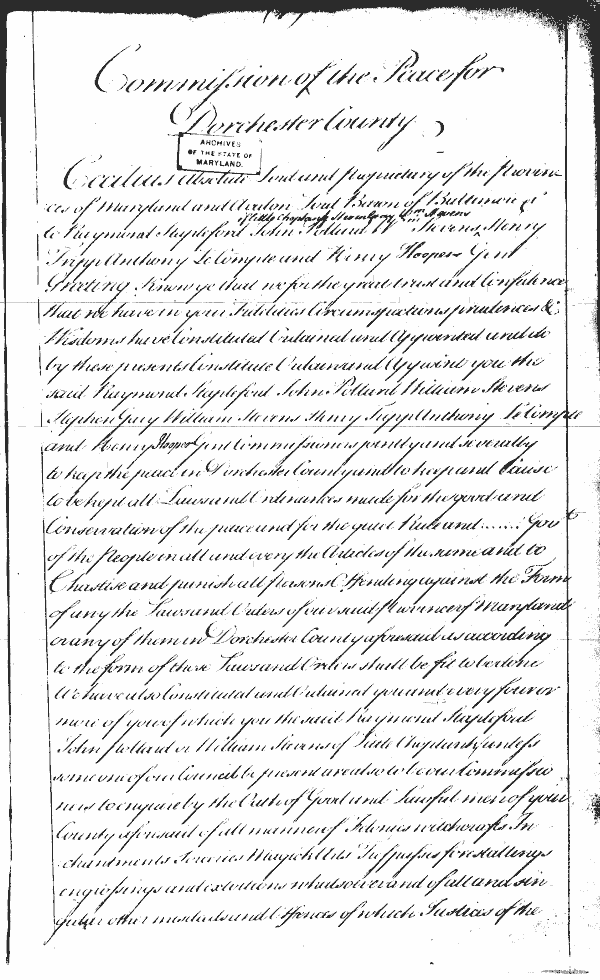 Commission of the Peace for
Dorchester County
ARCHIVES
OF THE STATE OF
MARYLAND.
Cecilius absolute Lord and Proprietary of the Provin
ces of Maryland and Avalon Lord Baron of Baltimore &c
to Raymond Stapleford John Pollard Wm Stevens Henry
of little Choptank Stephen Gary Wm Stevens
Tripp Anthony LeCompte and Henry Hooper Gent
Greeting Know ye that we for the great trust and Confidence
that we have in your Fidelities Circumspections prudences &
Wisdoms have Constituted Ordained and Appointed and do
by these presents Constitute Ordain and Appoint you the
said Raymond Stapleford John Pollard William Stevens
Stephen Gary William Stevens Henry Tripp Anthony LeCompte
and Henry Hooper Gent Commissioners jointly and severally
to keep the peace in Dorchester County and to keep and Cause
to be kept all Laws and Ordinances made for the good and
Conservation of the peace and for the quiet Rule and ....... Govt
of the People in all and every the Articles of the same and to
Chastise and punish all persons Offending against the Form
of any the Laws and Orders of our said Province of Maryland
or any of them in Dorchester County aforesaid as according
to the form of those Laws and Orders shall be fit to be done
We have also Constituted and Ordained you and every four or
more of you of which you the said Raymond Stapleford
John Pollard or William Stevens of Little Choptank (unless
some one of our Council be present) are also to be our Commissio
ners to enquire by the Oath of Good and Lawful men of your
County aforesaid of all manner of Felonies witchcrafts In
chantments Sorceries Magick Arts Trespasses forestallings
engrossings and extortions whatsoever and of all and sin
gular other misdeeds and Offences of which Justices of the